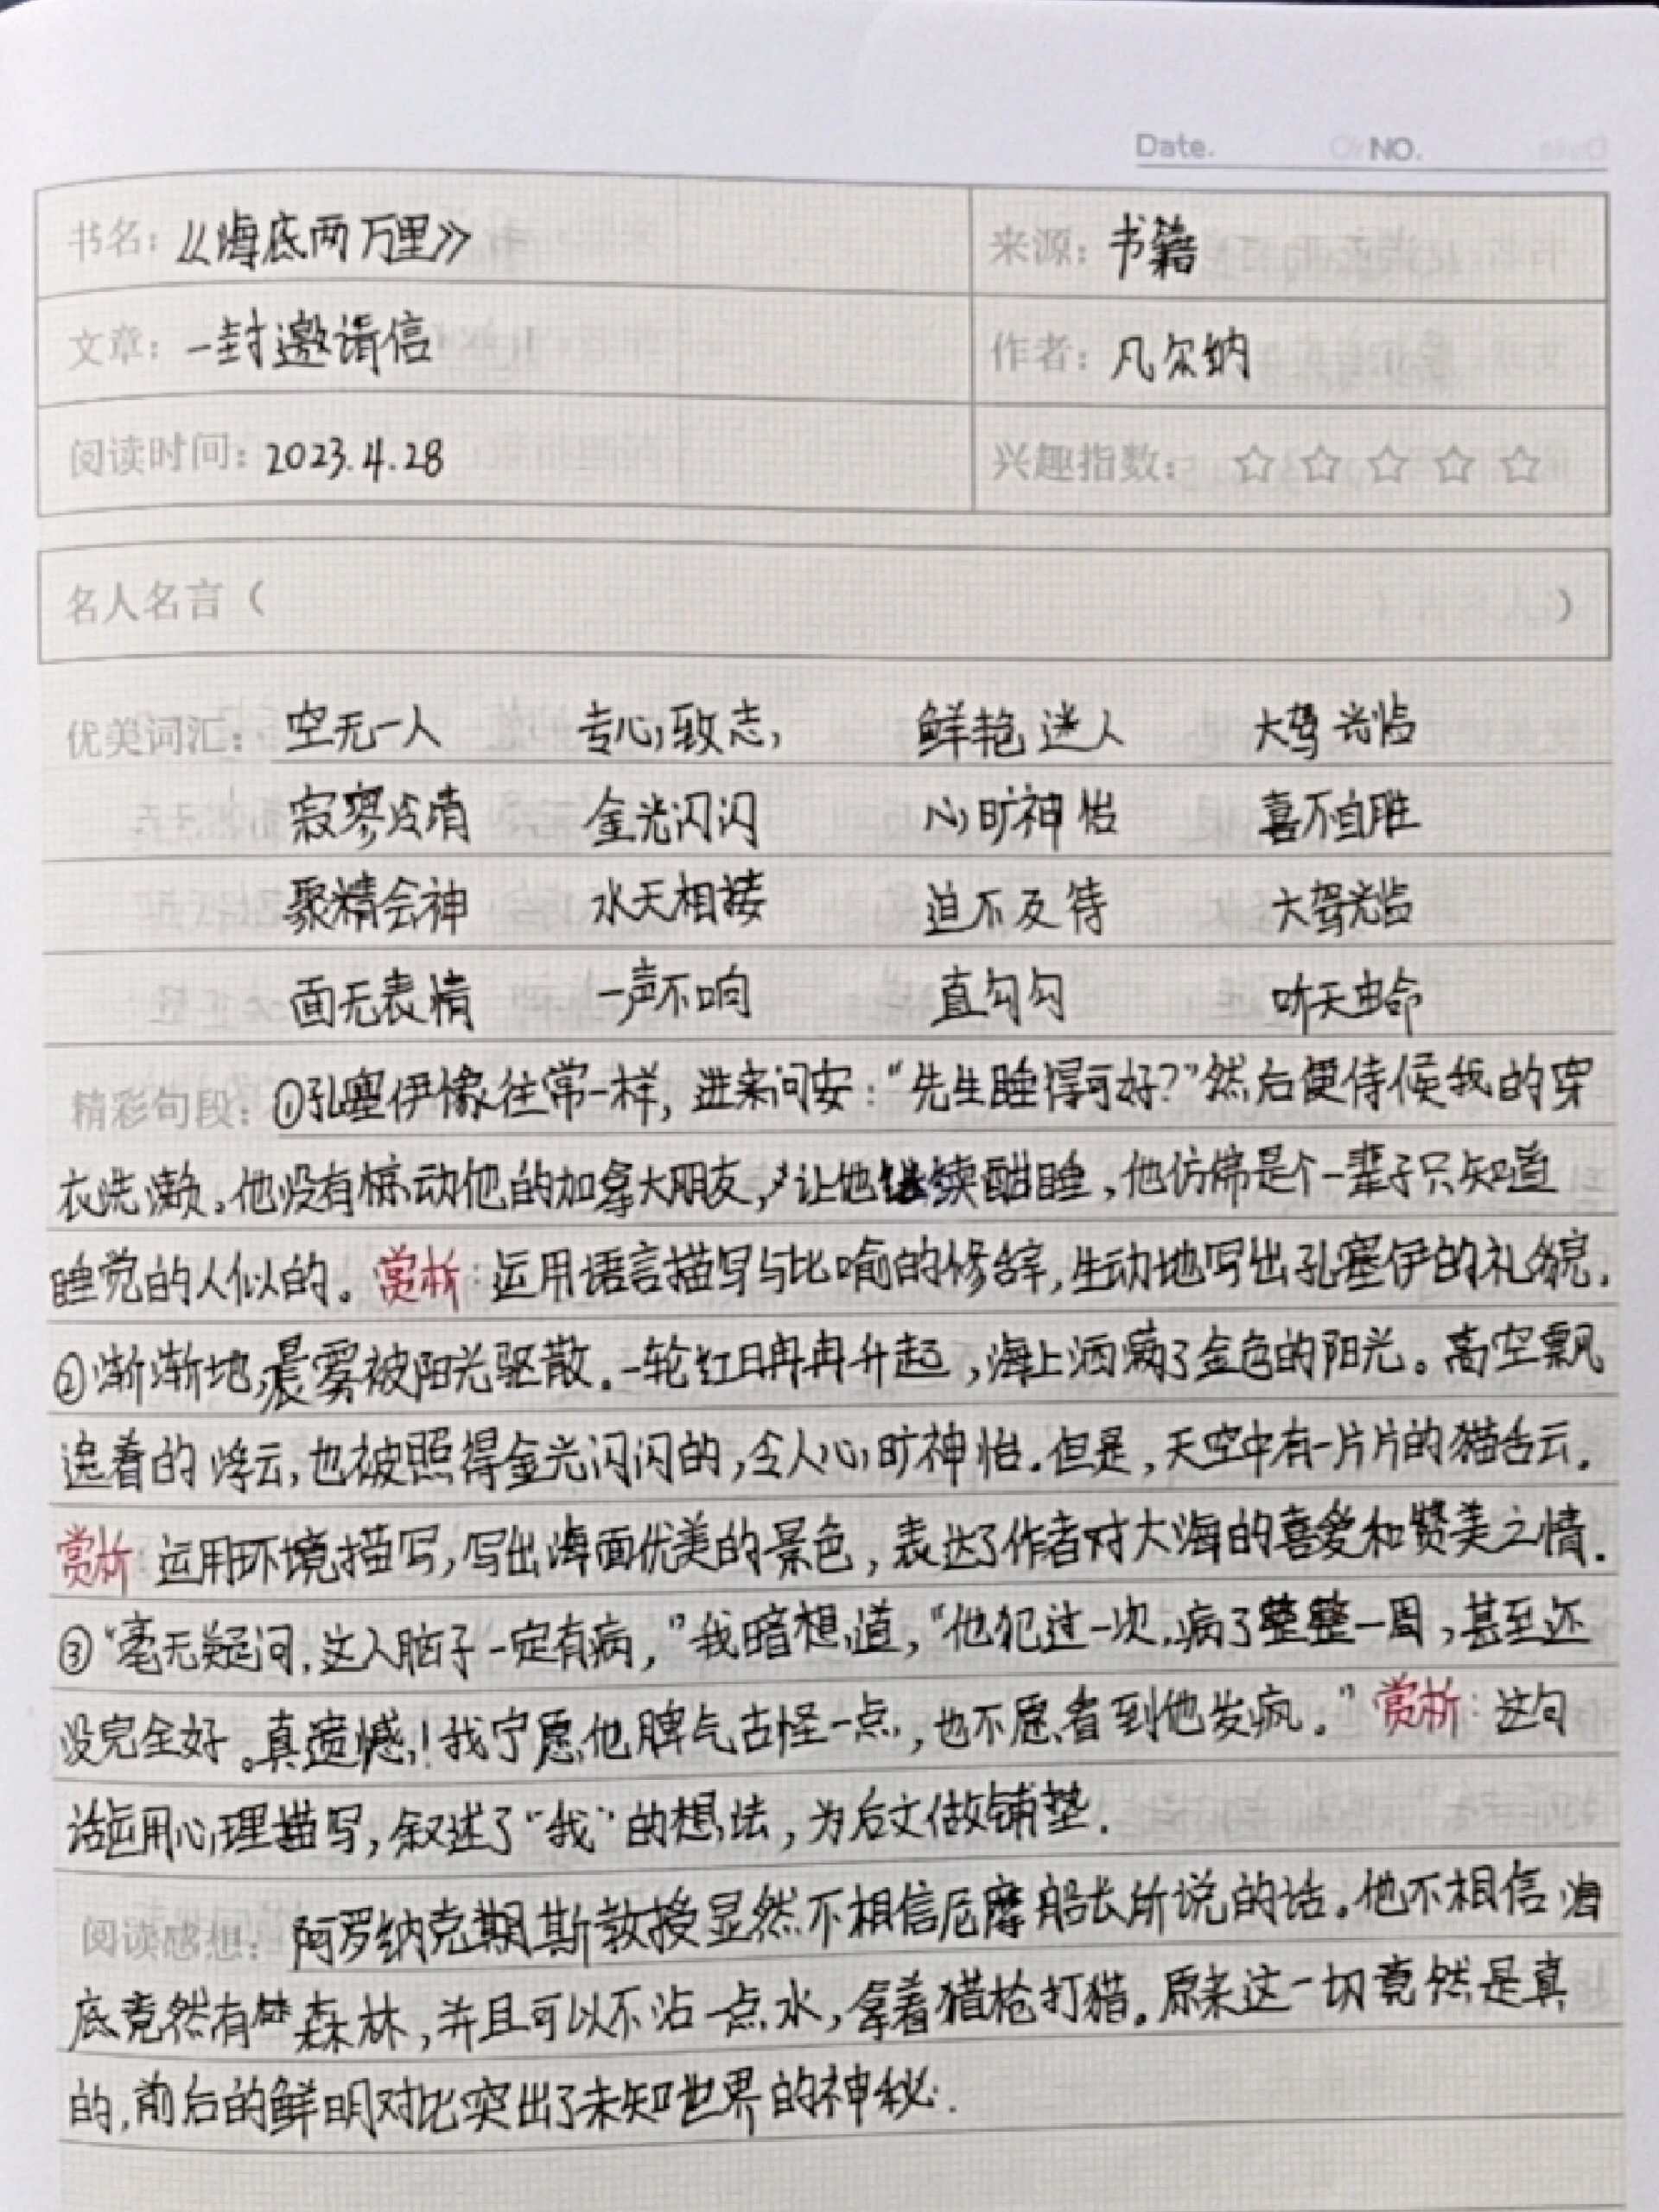 Date. NO.
书名：《海底两万里》 来源：书籍
文章：一封邀请信 作者：凡尔纳
阅读时间：2023.4.28 兴趣指数：☆ ☆ ☆ ☆ ☆
名人名言（ ）
优美词汇：空无一人 专心致志， 鲜艳迷人 大驾光临
寂寥冷清 金光闪闪 心旷神怡 喜不自胜
聚精会神 水天相接 迫不及待 大驾光临
面无表情 一声不响 直勾勾 听天由命
精彩句段：①孔塞伊像往常一样，进来问安：“先生睡得可好？”然后便侍候我的穿
衣洗漱。他没有惊动他的加拿大朋友，让他继续酣睡，他仿佛是个一辈子只知道
睡觉的人似的。赏析：运用语言描写与比喻的修辞，生动地写出孔塞伊的礼貌.
②渐渐地，晨雾被阳光驱散.一轮红日冉冉升起，海上洒满了金色的阳光。高空飘
逸着的浮云，也被照得金光闪闪的，令人心旷神怡.但是，天空中有一片片的猫舌云.
赏析：运用环境描写，写出海面优美的景色，表达了作者对大海的喜爱和赞美之情.
③“毫无疑问，这人脑子一定有病，”我暗想道，“他犯过一次，病了整整一周，甚至还
没完全好。真遗憾！我宁愿他脾气古怪一点，也不愿看到他发疯。”赏析：这句
话运用心理描写，叙述了“我”的想法，为后文做铺垫.
阅读感想：阿罗纳克期斯教授显然不相信尼摩船长所说的话。他不相信海
底竟然有森林，并且可以不沾一点水，拿着猎枪打猎。原来这一切竟然是真
的，前后的鲜明对比突出了未知世界的神秘.